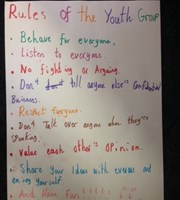 Rules of the Youth Group
• Behave for everyone.
• Listen to everyone.
• No fighting or Arguing.
• Don't tell anyone else's Confidential
Business.
• Respect Everyone.
• Don't Talk over anyone when they're
speaking.
• Value each other's opinion.
• Share your ideas with everyone and
enjoy yourself.
• And Have Fun